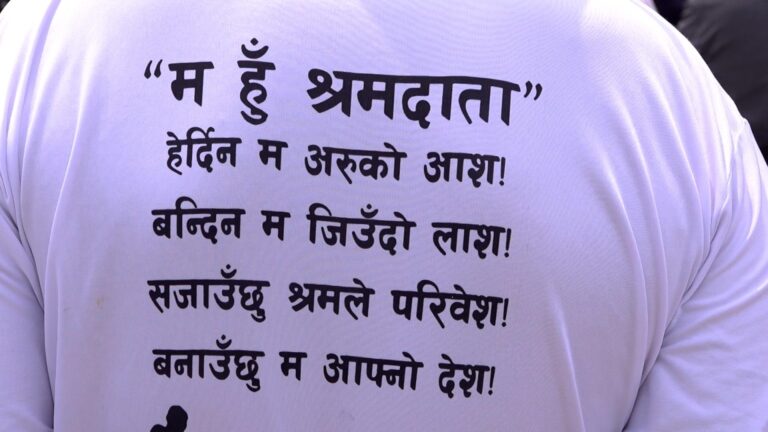 “म हुँ श्रमदाता”
हेर्दिन म अरुको आश!
बन्दिन म जिउँदो लाश!
सजाउँछु श्रमले परिवेश!
बनाउँछु म आफ्नो देश!